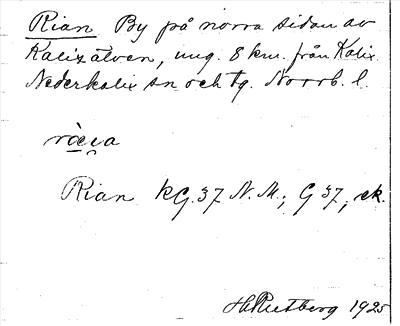 Rian By på norra sidan av
Kalixälven, ung. 8 km. från Kalix.
Nederkalix sn och tg. Norrb. l.
Rian kG. 37 N. M.; G 37, ek.
H. Rutberg 1925